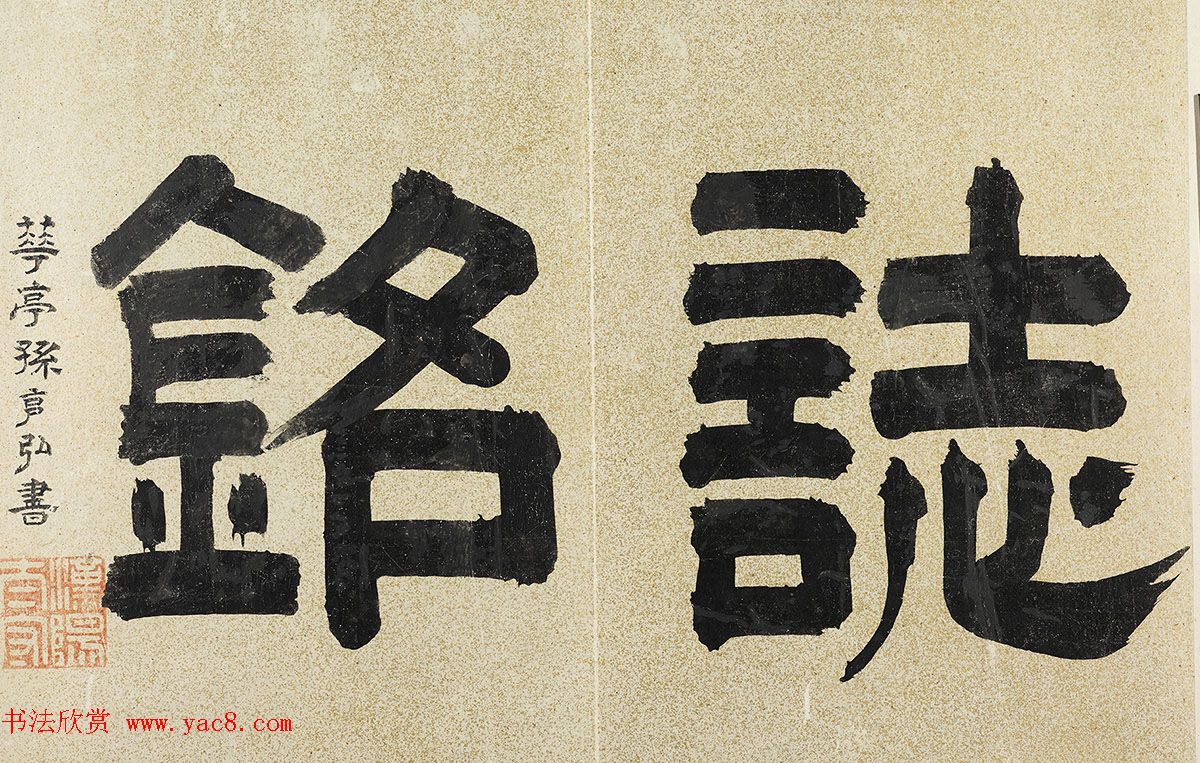 誌銘
華亭孫克弘書
漢陽
书法欣赏 www.yac8.com